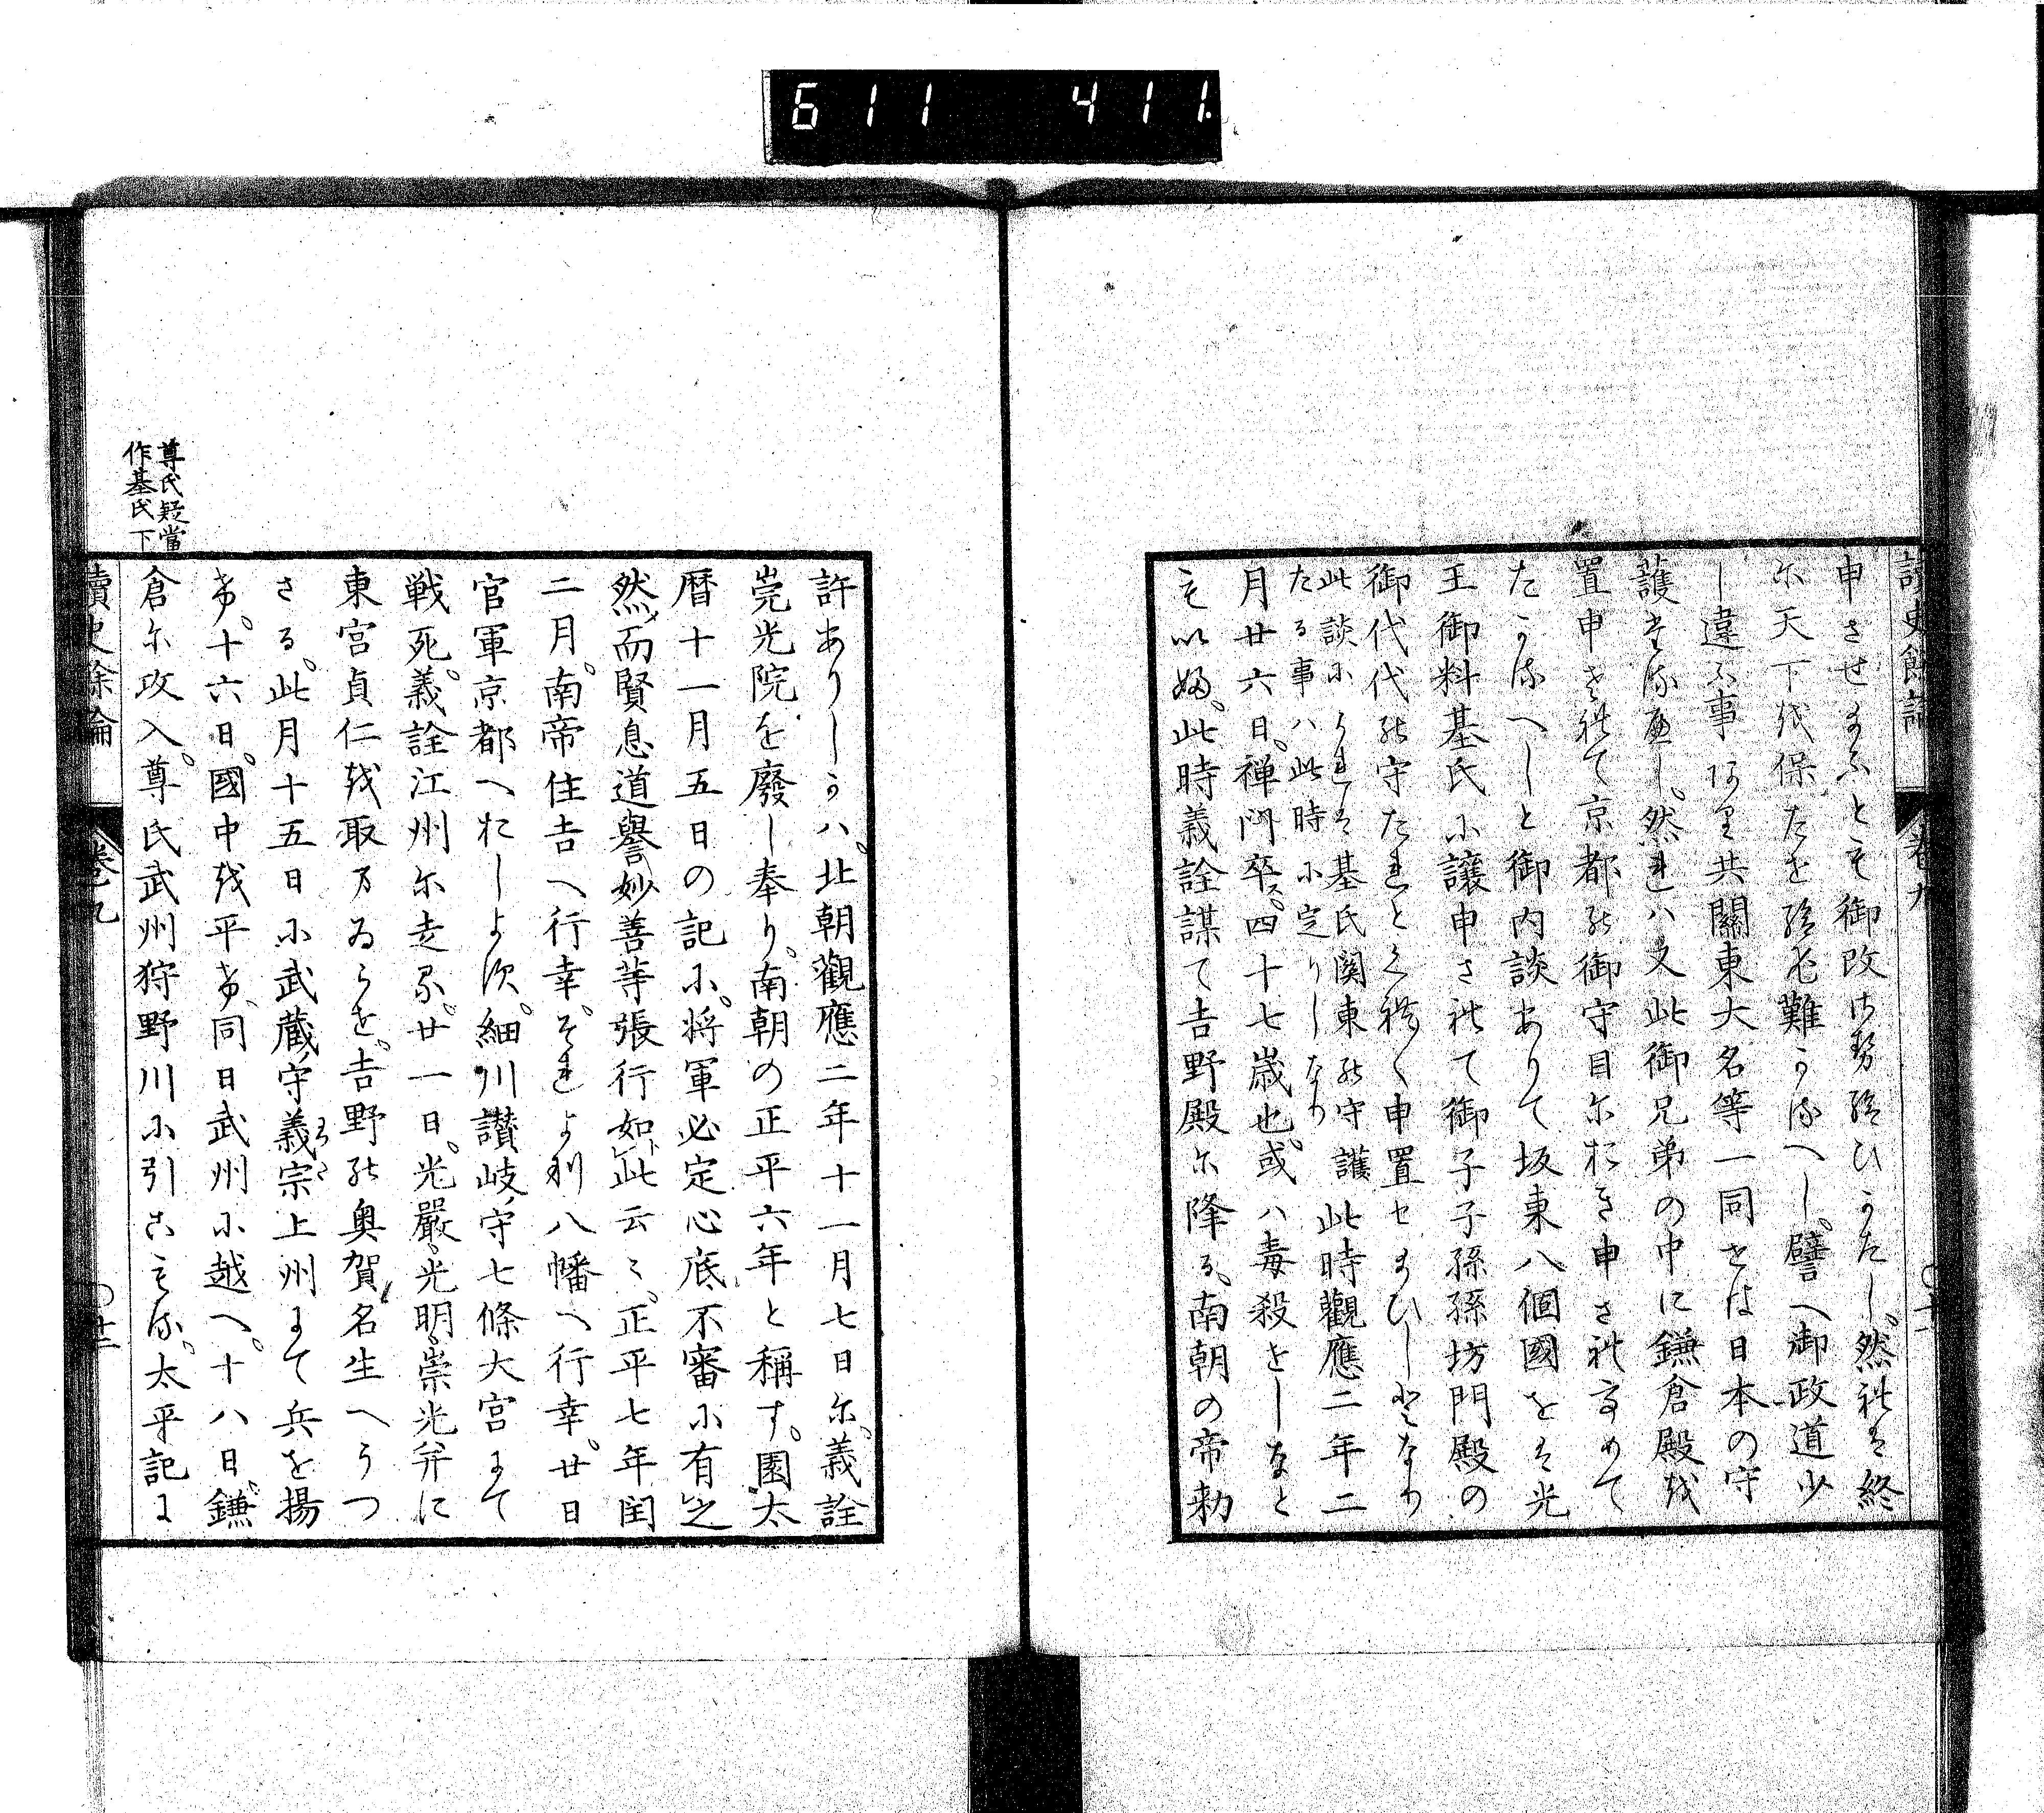 611 411.
讀史餘論 巻九
申させまふとも御改させ給ひかたし。然れは終
に天下を保たせ給ん難かるへし。譬へ御政道少
し違ふ事ありとも共關東大名等一同せは日本の守
護たるへし。然れハ又此御兄弟の中に鎌倉殿を
置申され て京都の御守目におき申されなめて
たかるへしと御内談ありて坂東八個國をは光
王御料基氏に譲申されて御子子孫孫坊門殿の
御代代の守たれとくれ〳〵申置せまひしとなり
此談によれは基氏関東の守護
たる事ハ此時に定りしなり
此時觀應二年二
月廿六日。禅門卒ス。四十七歳也。或ハ毒殺せしなと
もいふ。此時義詮謀て吉野殿に降る。南朝の帝勅
許ありしかハ。北朝觀應二年十一月七日に。義詮
崇光院を廢し奉り。南朝の正平六年と稱す。園太
暦十一月五日の記に。将軍必定心底不審に有レ之
然メ而賢息道譽妙善等張行如レ此云〻。正平七年閏
二月。南帝住吉へ行幸。それより八幡へ行幸。廿日
官軍京都へおしよす。細川讃岐ノ守七條大宮にて
戦死。義詮江州に走る。廿一日。光嚴光明崇光并に
東宮貞仁を取まゐらせ。吉野の奥賀名生へうつ
さる。此月十五日に武蔵ノ守義宗上州にて兵を揚
く。十六日。國中を平く。同日武州に越へ。十八日。鎌
倉に攻入。尊氏武州狩野川に引こもる。太平記に
尊氏疑當
作基氏下
讀史餘論 巻九